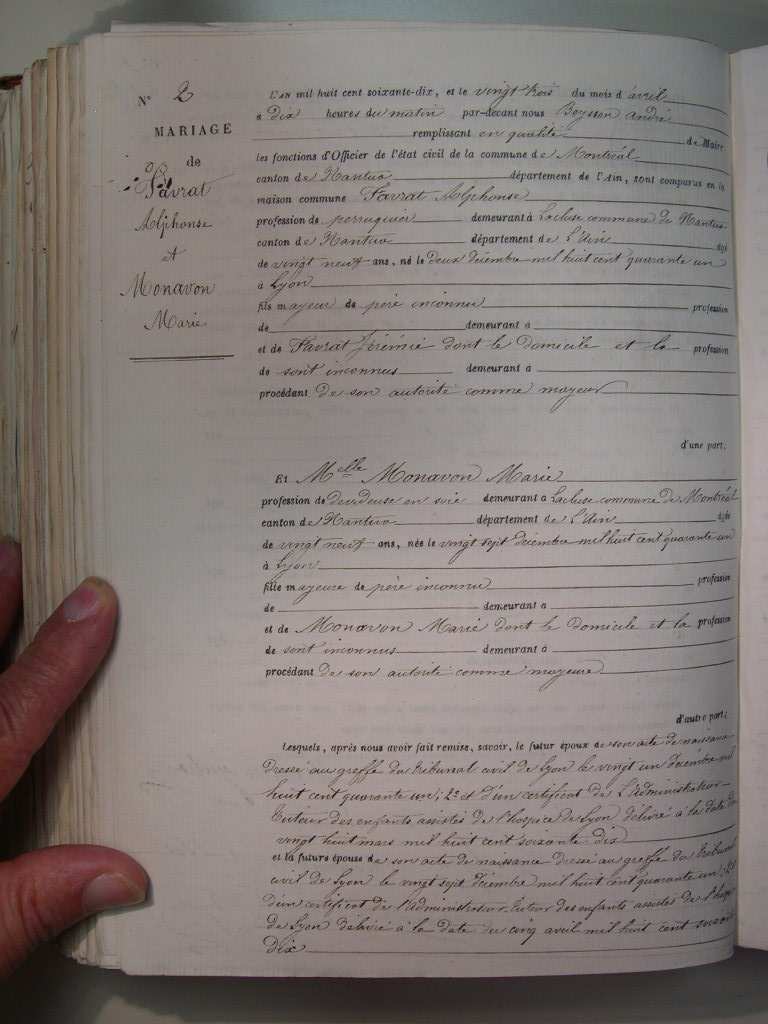 N° 2
MARIAGE
de
Favrat
Alphonse
et
Monavon
Marie
L'AN mil huit cent soixante-dix, et le vingt trois du mois d'avril
à dix heures du matin par-devant nous Beysson André
remplissant en qualité de Maire
les fonctions d'Officier de l'état civil de la commune de Montréal
canton de Nantua département de l'Ain, sont comparus en la
maison commune Favrat Alphonse
profession de perruquier demeurant à Lacluse commune de Nantua
canton de Nantua département de L'Ain âgé
de vingt neuf ans, né le deux décembre mil huit cent quarante un
à Lyon
fils majeur de père inconnu profession
de demeurant à
et de Favrat Jérémie dont le domicile et la profession
de sont inconnus demeurant à
procédant de son autorité comme mayeur
d'une part;
Et Melle Monavon Marie
profession de devideuse en soie demeurant à Lacluse commune de Montréal
canton de Nantua département de L'Ain âgée
de vingt neuf ans, née le vingt sept décembre mil huit cent quarante un
à Lyon
fille mayeure de père inconnu profession
de demeurant à
et de Monavon Marie dont le domicile et la profession
de sont inconnus demeurant à
procédant de son autorité comme mayeure
d'autre part;
Lesquels, après nous avoir fait remise, savoir, le futur époux de son acte de naissance
dressé au greffe du tribunal civil de Lyon le vingt un décembre mil
huit cent quarante un; 2° et d'un certificat de L'Administrateur
tuteur des enfants assistés de l'hospice de Lyon délivré à la date du
vingt huit mars mil huit cent soixante dix
et la future épouse de son acte de naissance dressé au greffe du tribunal
civil de Lyon le vingt sept décembre mil huit cent quarante un; 2°
d'un certificat de l'Administrateur tuteur des enfants assistés de l'hospice
de Lyon délivré à la date du cinq avril mil huit cent soixante
dix